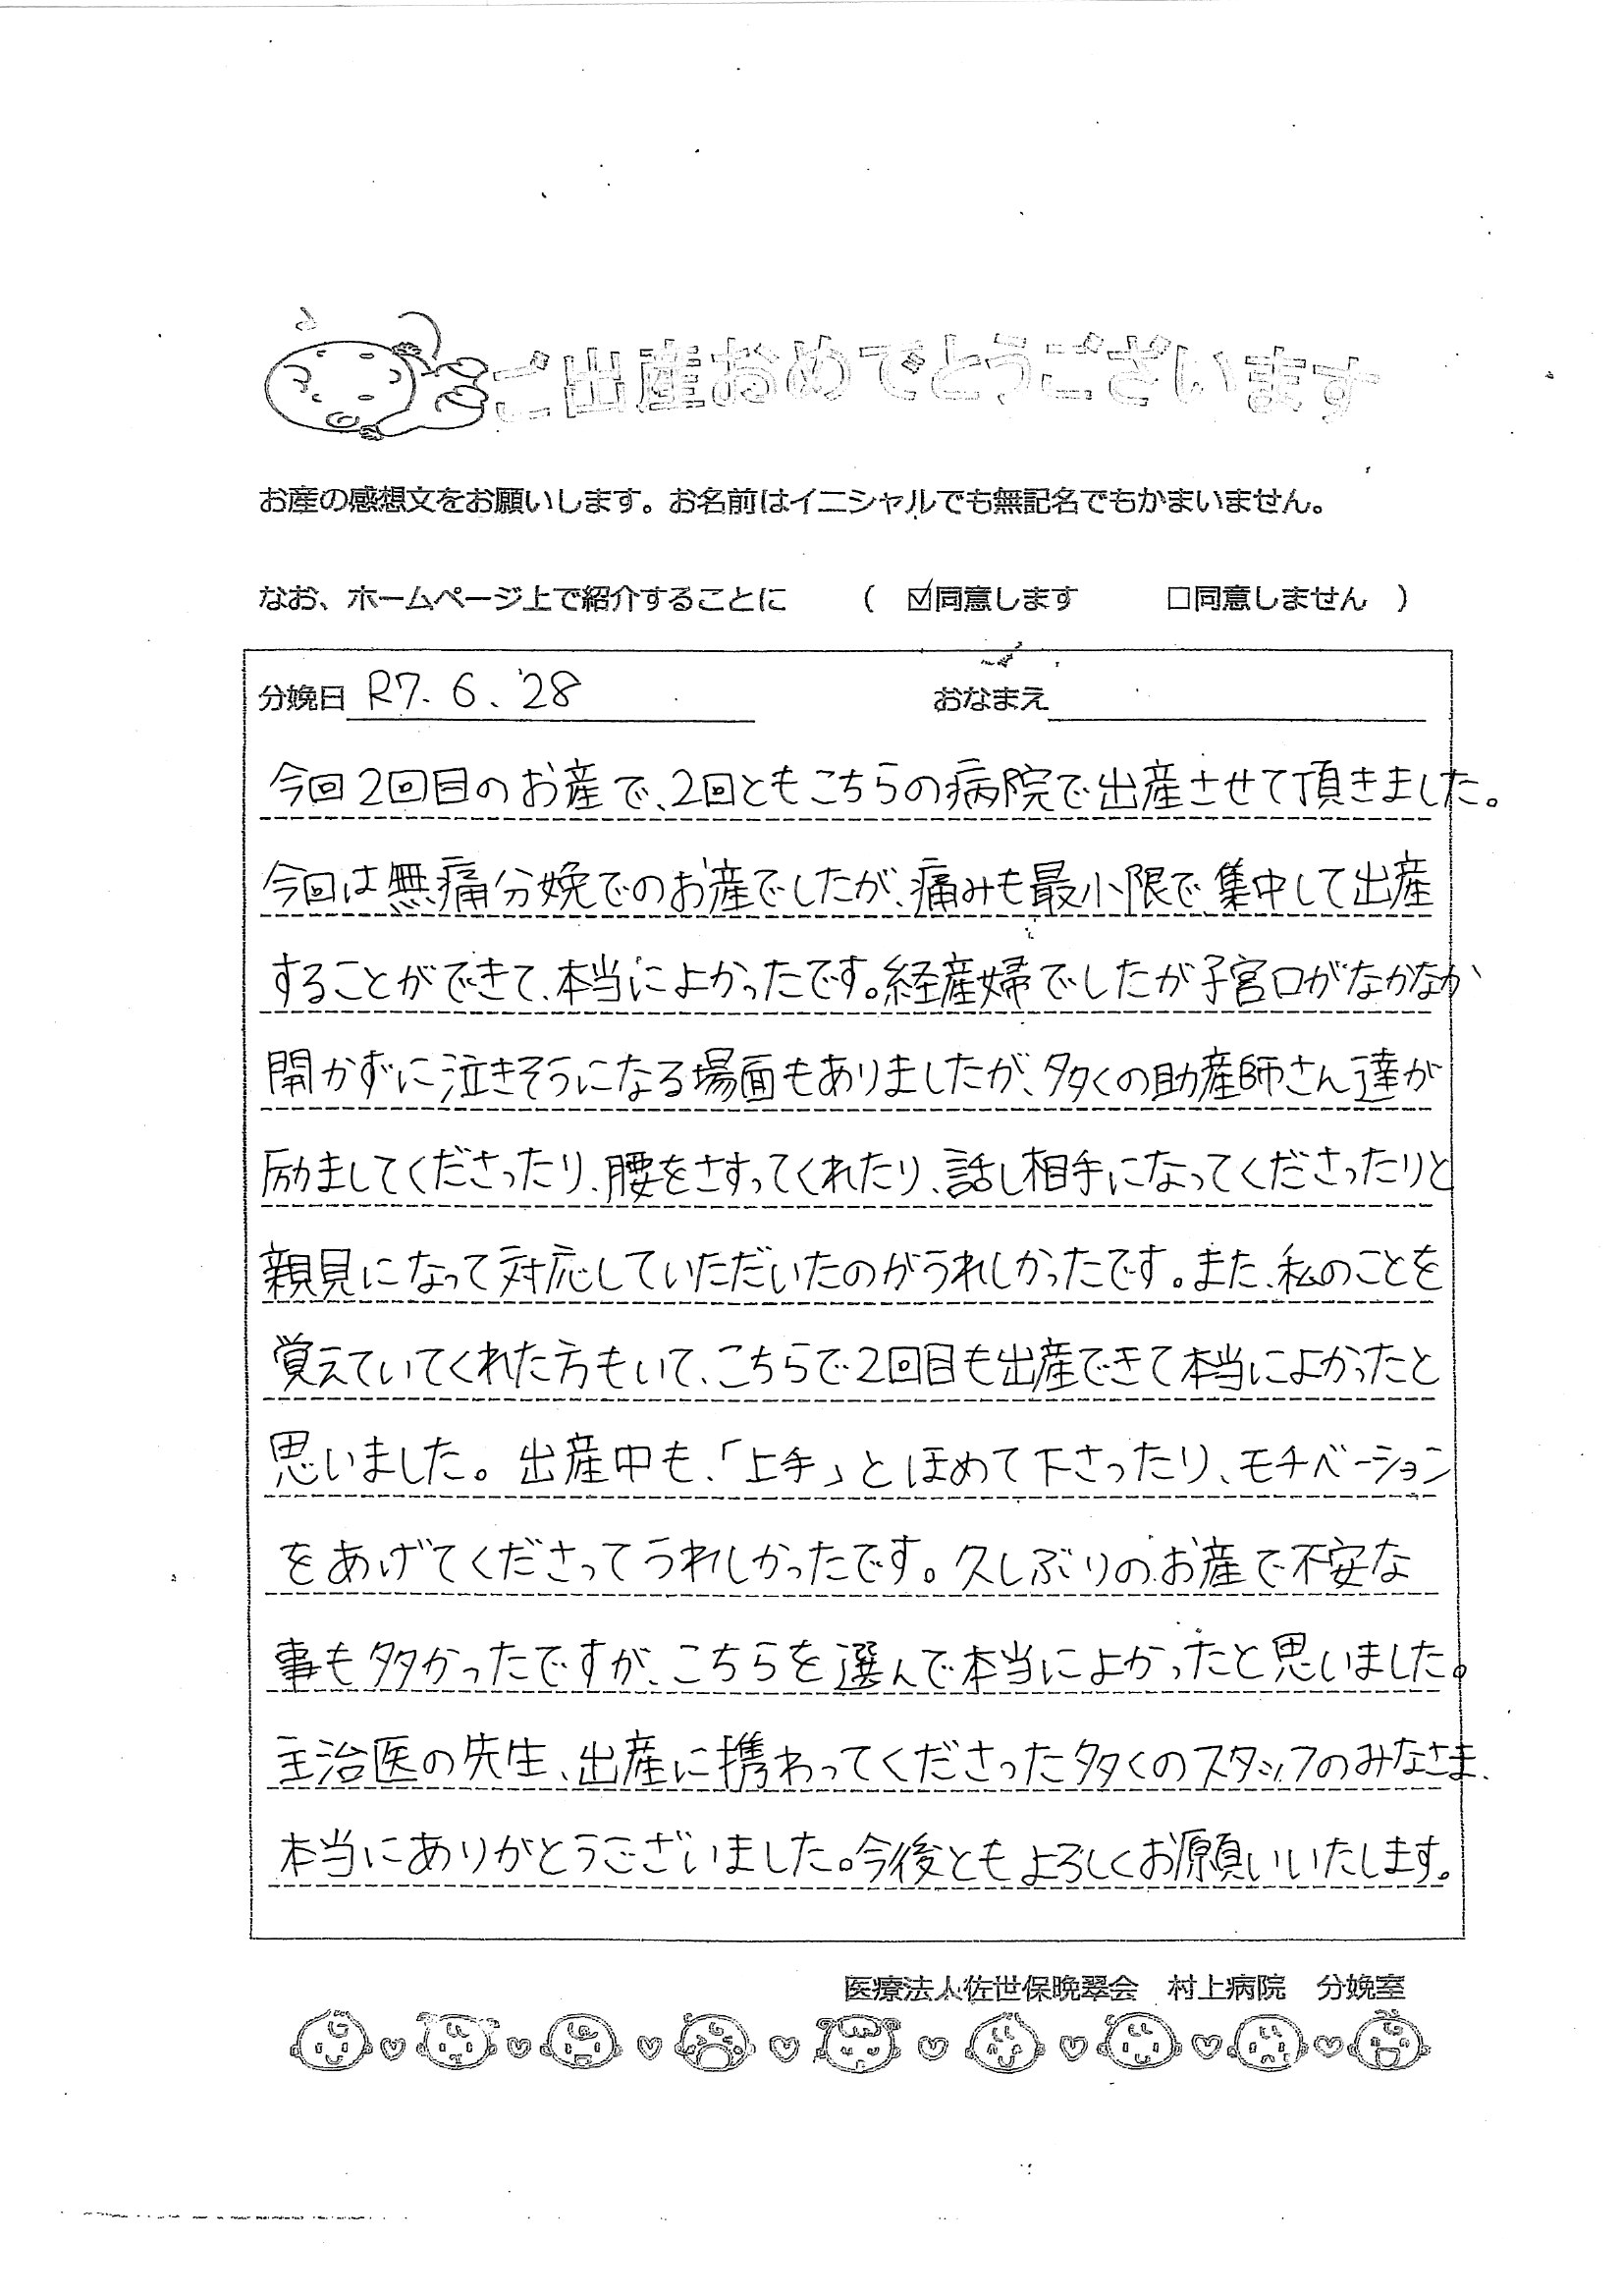 ご出産おめでとうございます
お産の感想文をお願いします。お名前はイニシャルでも無記名でもかまいません。
なお、ホームページ上で紹介することに （ ☑同意します □同意しません ）
分娩日 R7.6.28 おなまえ
今回2回目のお産で、2回ともこちらの病院で出産させて頂きました。
今回は無痛分娩でのお産でしたが、痛みも最小限で集中して出産
することができて、本当によかったです。経産婦でしたが子宮口がなかなか
開かずに泣きそうになる場面もありましたが、多くの助産師さん達が
励ましてくださったり、腰をさすってくれたり、話し相手になってくださったりと
親見になって対応していただいたのがうれしかったです。また、私のことを
覚えていてくれた方もいて、こちらで2回目も出産できて本当によかったと
思いました。出産中も、「上手」とほめて下さったり、モチベーション
をあげてくださってうれしかったです。久しぶりのお産で不安な
事も多かったですが、こちらを選んで本当によかったと思いました。
主治医の先生、出産に携わってくださった多くのスタッフのみなさま、
本当にありがとうございました。今後ともよろしくお願いいたします。
医療法人佐世保晩翠会 村上病院 分娩室